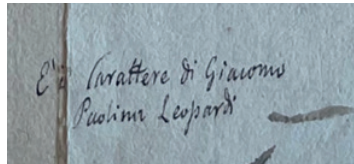 E' Carattere di Giacomo
Paolina Leopardi